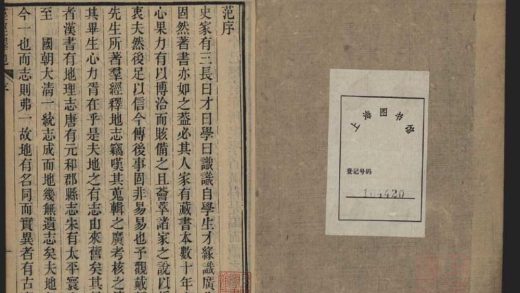 范序
史家有三長曰才曰學曰識識自學生才緣識廣
固然著書亦如之葢必其人家有藏書本數十年
心果力有以博洽而賅備之且薈萃諸家之說以
衷夫然後足以信今傳後事固非易易也予觀戴
先生所著羣經釋地志竊嘆其蒐輯之廣考核之
其畢生心力胥在乎是夫地之有志由來舊矣其
者漢書有地理志唐有元和郡縣志宋有太平寰
至 國朝大清一統志成而地幾無遺志矣夫地
今一也而志則弗一故地有名同而實異者有古
登记号码